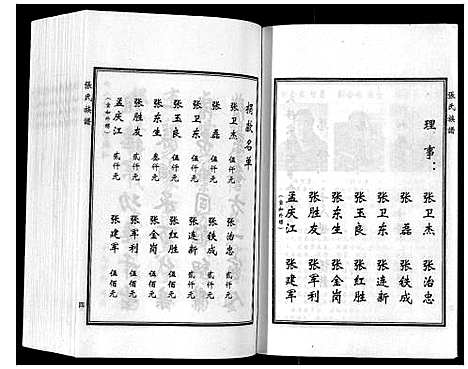 張氏族譜
理事：
张卫杰
张磊
张卫东
张玉良
张东生
张胜友
孟庆江
张治忠
张铁成
张连新
张红胜
张金岗
张军利
张建军
捐款名单
张卫杰 伍仟元
张磊 伍仟元
张卫东 伍仟元
张玉良 伍仟元
张东生 叁仟元
张胜友 贰仟元
孟庆江 贰仟元
张治忠 贰仟元
张铁成 贰仟元
张连新 贰仟元
张红胜 伍佰元
张金岗 伍佰元
张军利 伍佰元
张建军 伍佰元
張氏族譜
四